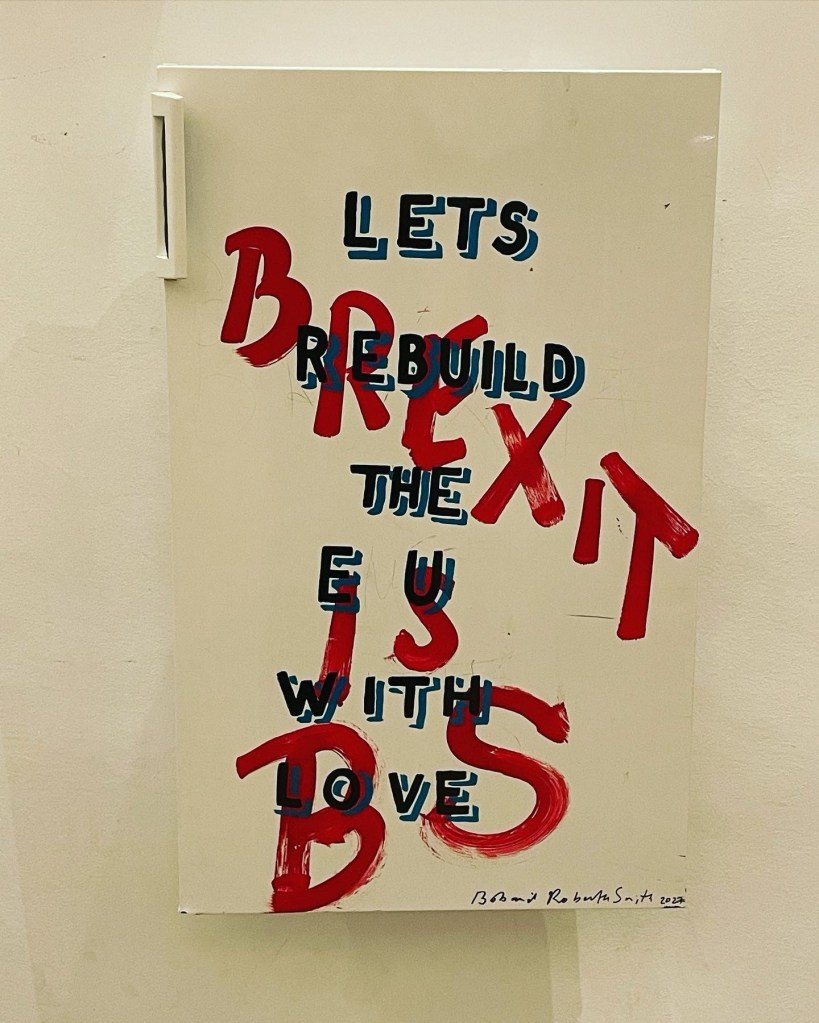 LETS
REBUILD
THE
E U
WITH
LOVE
BREXIT
IS
BS
Bob and Roberta Smith